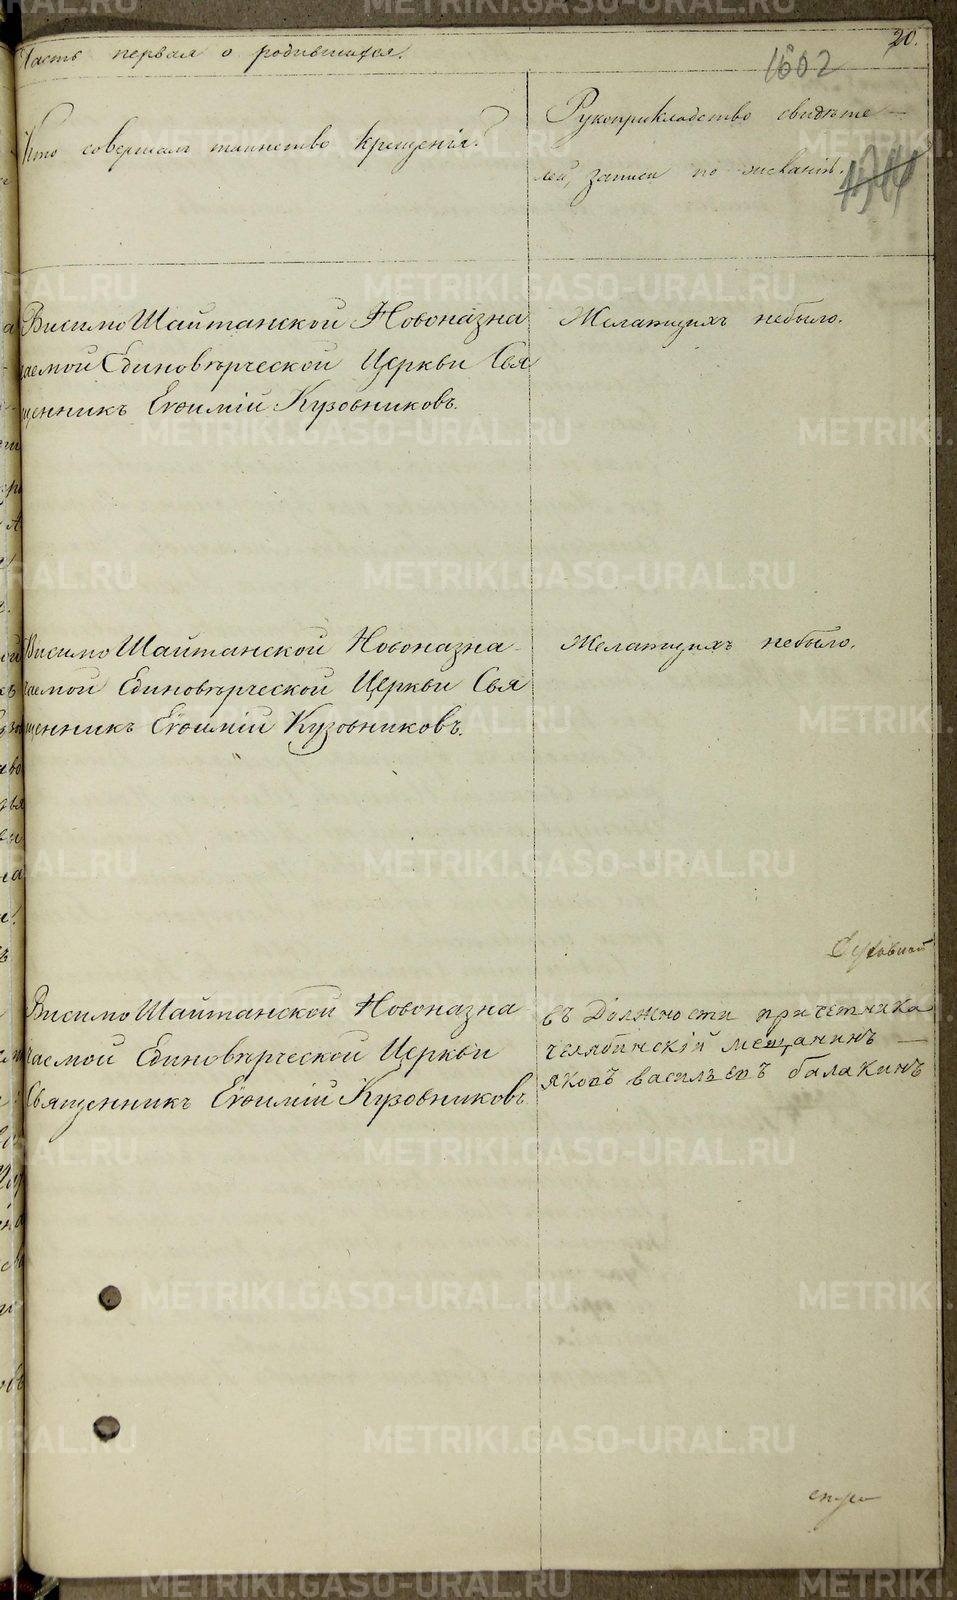 Часть первая о родившихся.
20.
1602
Кто совершалъ таинство крещенія?
Рукоприкладство свидѣте-
лей, записи по желанію.
ВисимоШайтанской Новоназна
чаемой Единовѣрческой Церкви Свя
щенникъ Евѳимій Кузовниковъ.
Желающихъ небыло.
ВисимоШайтанской Новоназна-
чаемой Единовѣрческой Церкви Свя
щенникъ Евѳимій Кузовниковъ.
Желающихъ небыло.
ВисимоШайтанской Новоназна
чаемой Единовѣрческой Церкви
Священникъ Евѳимій Кузовниковъ
въ Должности причетника
челябинскій мещанинъ
яковъ васильевъ балакинъ
METRIKI.GASO-URAL.RU